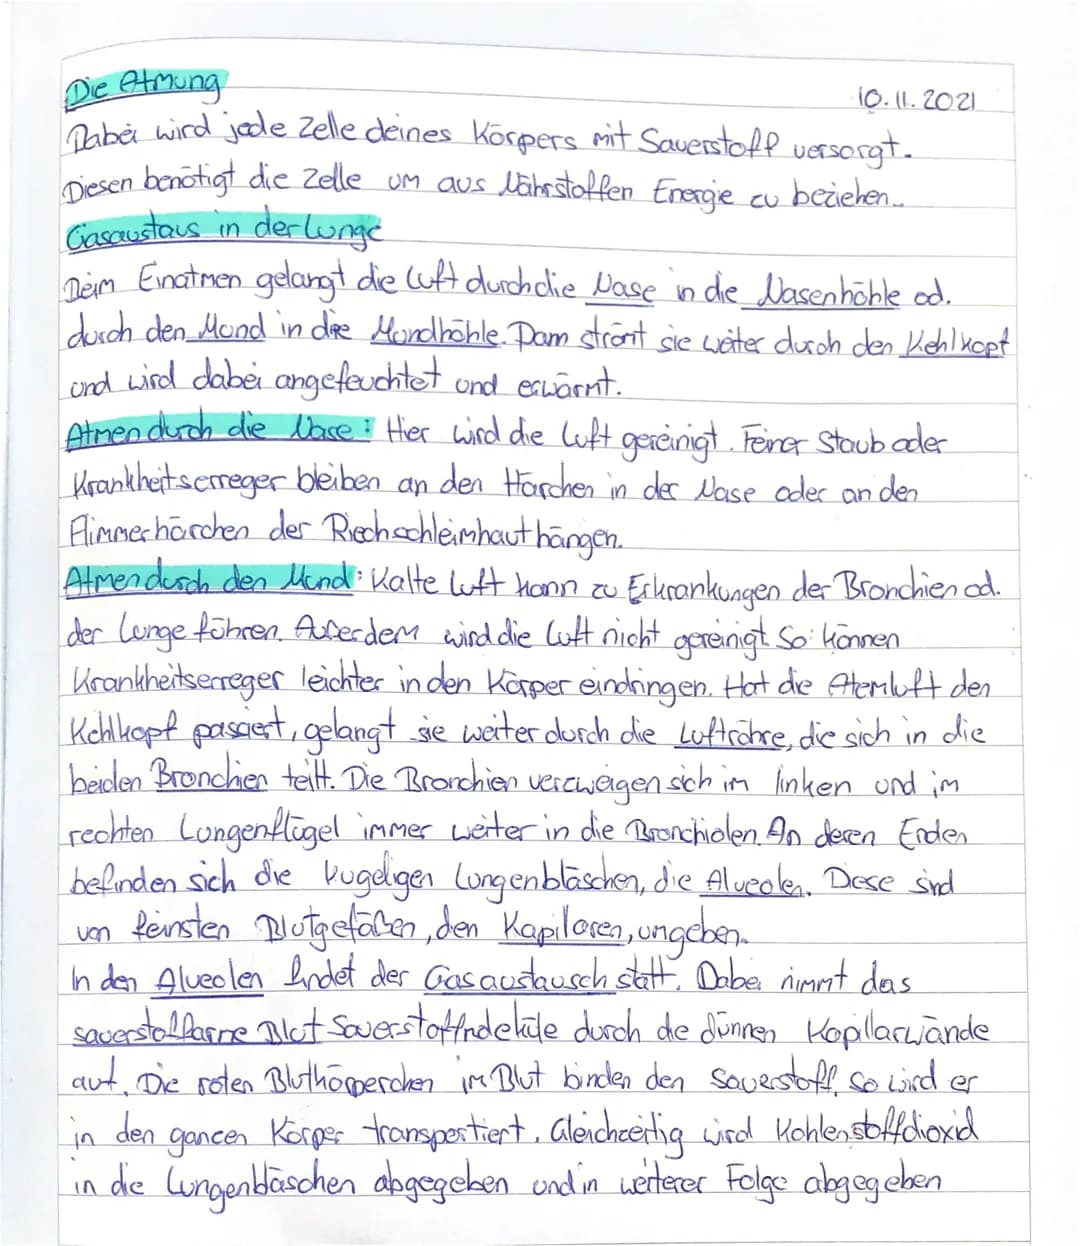 Die Atmung
10.11.2021
Dabei wird jede Zelle deines Körpers mit Sauerstoff versorgt.
Diesen benötigt die Zelle um aus Nährstoffen Energie zu beziehen.
Gasaustaus in der Lunge
Beim Einatmen gelangt die Luft durch die Nase in die Nasenhöhle od.
durch den Mund in die Mundhöhle. Dann strömt sie weiter durch den Kehlkopf
und wird dabei angefeuchtet und erwärmt.
Atmen durch die Nase: Hier wird die Luft gereinigt. Feiner Staub oder
Krankheitserreger bleiben an den Härchen in der Nase oder an den
Flimmerhärchen der Riechschleimhaut hängen.
Atmen durch den Mund: Kalte Luft kann zu Erkrankungen der Bronchien od.
der Lunge führen. Außerdem wird die Luft nicht gereinigt. So können
Krankheitserreger leichter in den Körper eindringen. Hat die Atemluft den
Kehlkopf passiert, gelangt sie weiter durch die Luftröhre, die sich in die
beiden Bronchien teilt. Die Bronchien verzweigen sich im linken und im
rechten Lungenflügel immer weiter in die Bronchiolen. An deren Enden
befinden sich die kugeligen Lungenbläschen, die Alveolen. Diese sind
von feinsten Blutgefäßen, den Kapillaren, umgeben.
In den Alveolen findet der Gasaustausch statt. Dabei nimmt das
sauerstoffarme Blut Sauerstoffmoleküle durch die dünnen Kapillarwände
auf. Die roten Blutkörperchen im Blut binden den Sauerstoff. So wird er
in den ganzen Körper transportiert. Gleichzeitig wird Kohlenstoffdioxid
in die Lungenbläschen abgegeben und in weiterer Folge abgegeben